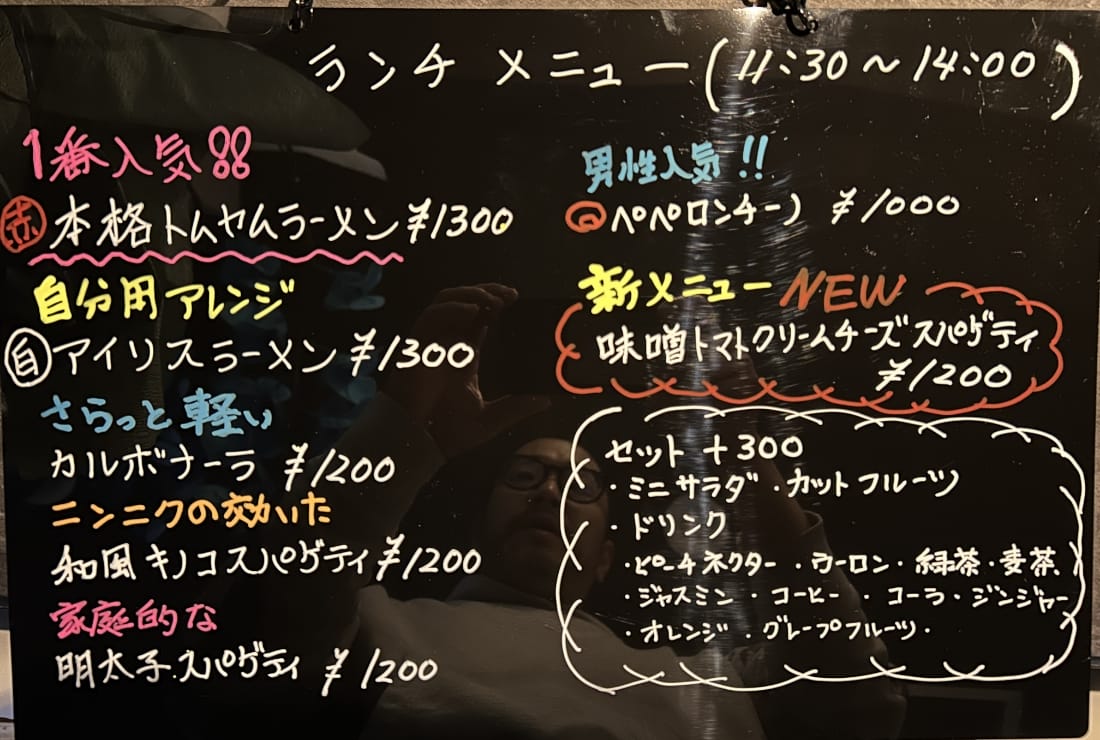 ランチ メニュー (11:30〜14:00)
1番人気!!
赤 本格トムヤムラーメン ¥1300
自分用アレンジ
自 アイリスラーメン ¥1300
さらっと軽い
カルボナーラ ¥1200
ニンニクの効いた
和風キノコスパゲティ ¥1200
家庭的な
明太子スパゲティ ¥1200
男性人気!!
ペペロンチーノ ¥1000
新メニュー NEW
味噌トマトクリームチーズスパゲティ
¥1200
セット +300
・ミニサラダ ・カットフルーツ
・ドリンク
・ピーチネクター ・ウーロン・緑茶・麦茶
・ジャスミン・コーヒー・コーラ・ジンジャー
・オレンジ・グレープフルーツ・